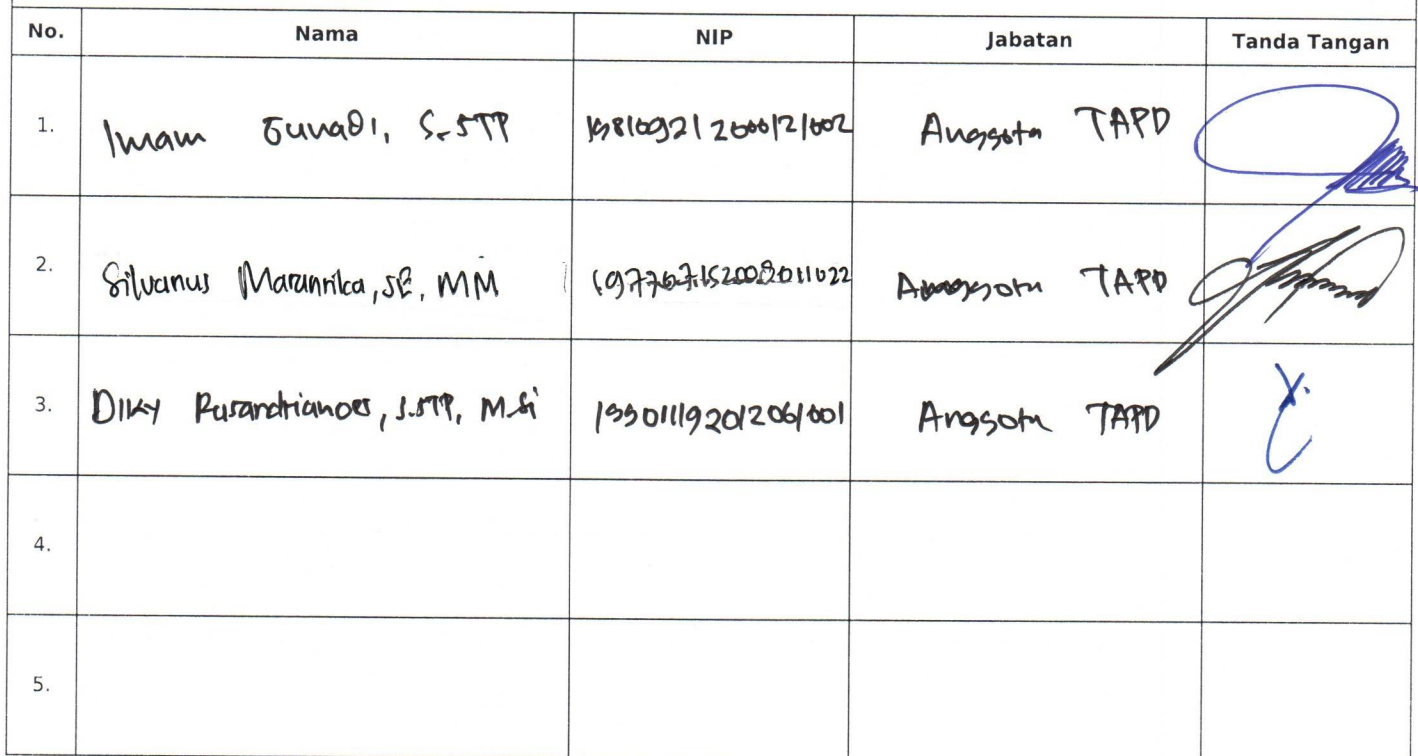 No. Nama NIP Jabatan Tanda Tangan
1. Imam Gunadi, S.STP 198109212000121002 Anggota TAPD
2. Silvanus Marannika, SE, MM Anggota TAPD
3. Diky Pusandrianoes, S.STP, M.Si 199011192012061001 Anggota TAPD
4.
5.